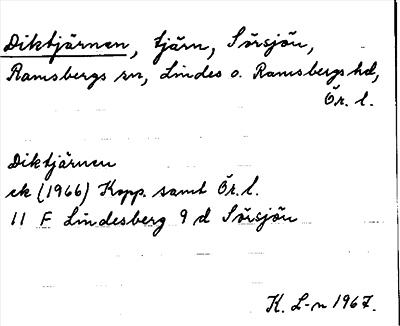 Diktjärnen, tjärn, Sörsjön,
Ramsbergs sn, Lindes o. Ramsbergs hd,
Ör. l.
Diktjärnen
ek (1966) Kopp. samt Ör. l.
11 F Lindesberg 9 d Sörsjön
K. L-n 1967.